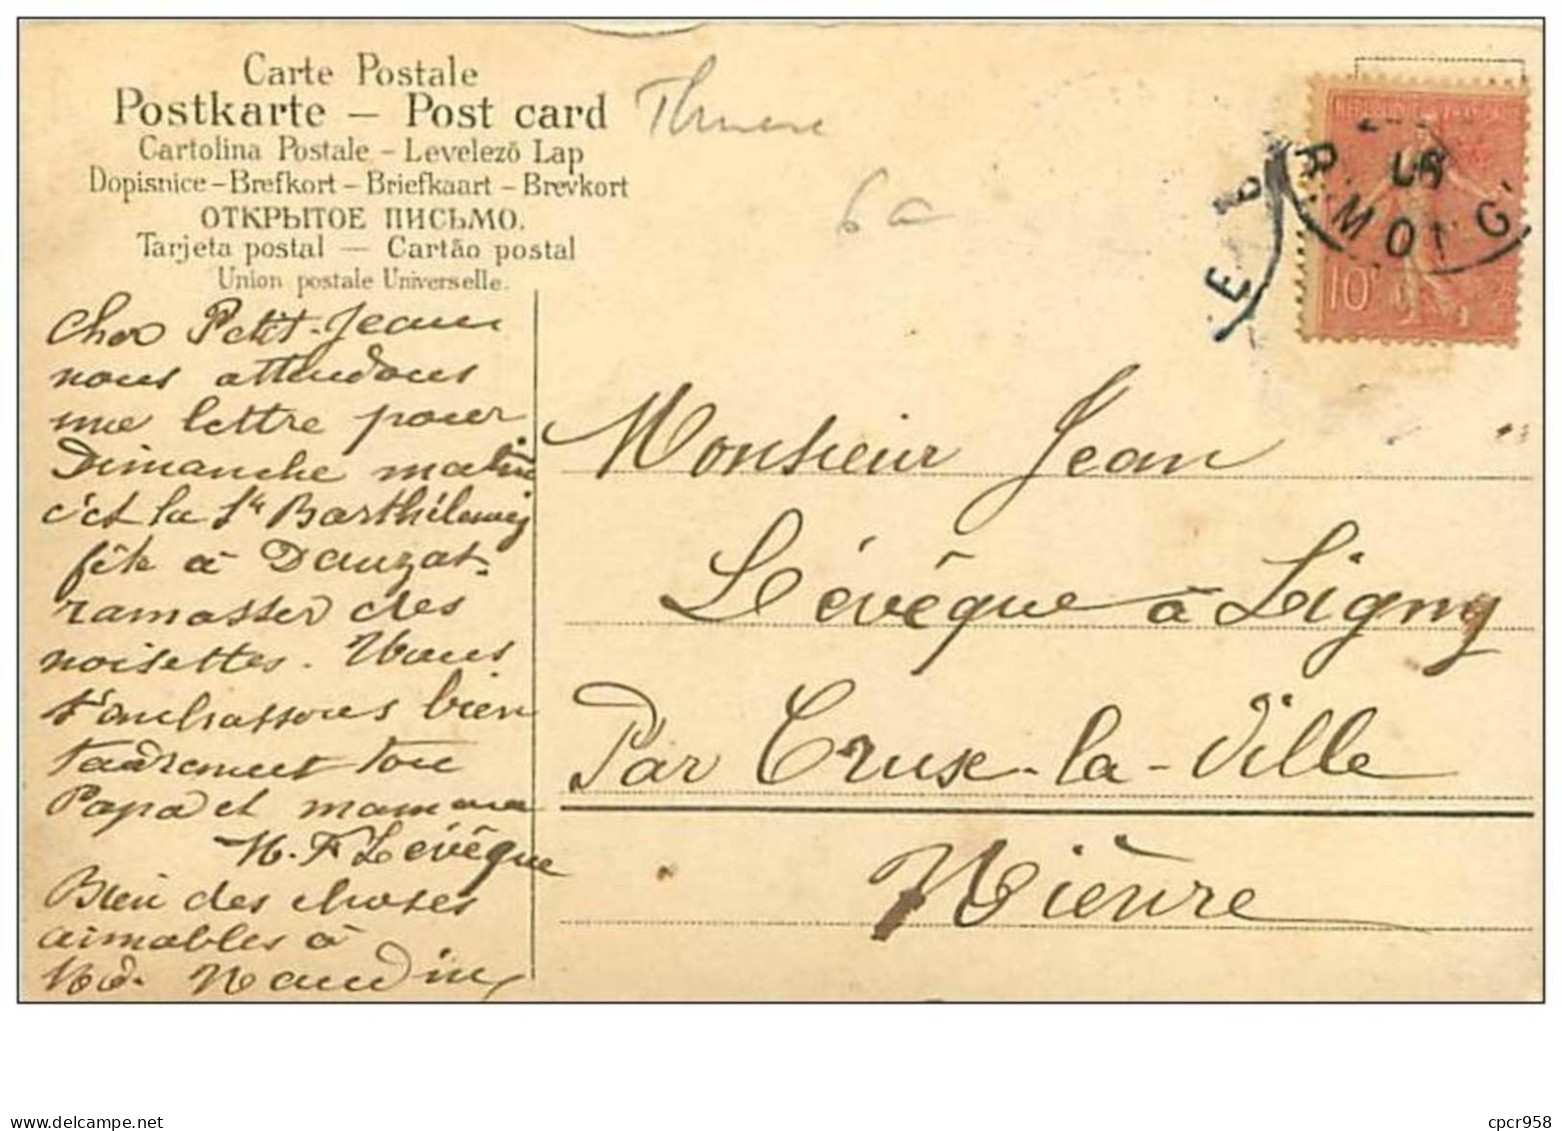 Carte Postale
Postkarte – Post card
Cartolina Postale – Levelező Lap
Dopisnice – Brefkort – Briefkaart – Brevkort
ОТКРЫТОЕ ПИСЬМО.
Tarjeta postal — Cartão postal
Union postale Universelle.
6
10
Cher Petit-Jean
nous attendons
une lettre pour
Dimanche matin
c'est la St Barthélemy
fête à Dauzat.
ramasser des
noisettes. Nous
t'embrassons bien
tendrement ton
Papa et maman
M. F Levêque
Bien des choses
aimables à
Md. Naudin
Monsieur Jean
Lévêque à Ligny
Par Crux-la-Ville
Nièvre
cpcr958